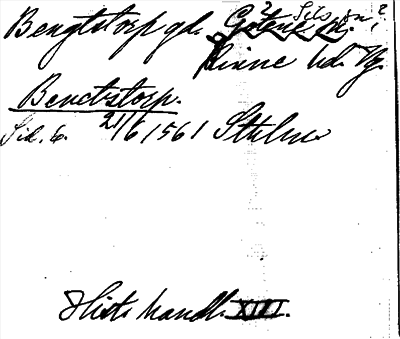 Bengtstorp gd. Götene sn.
2 Sils sn,?
Kinne hd. Vg.
Benctstorp.
Sid. 6. 21/6 1561 Sthlm
Hist. handl. XIII.